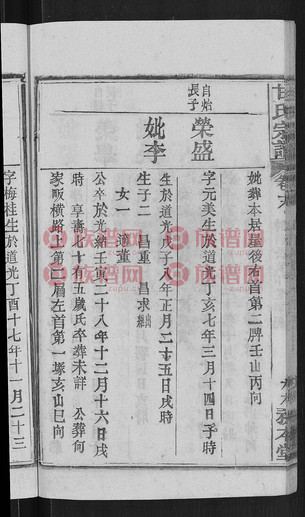 甘氏宗譜
卷六
妣葬本屋塲後右首第二牌壬山丙向
自始長子
榮盛
字元美生於道光丁亥七年三月十四日子時
妣李
生於道光戊子八年正月二十五日戌時
生子二 昌重 昌求出繼
女一 適董
公卒於光緒壬寅二十八年十二月十六日戌
時享壽七十有五歲氏卒葬未詳 公葬何
家畈橫路上第二層左首第一塚亥山巳向
字梅桂生於道光丁酉十七年十一月二十三
族譜网